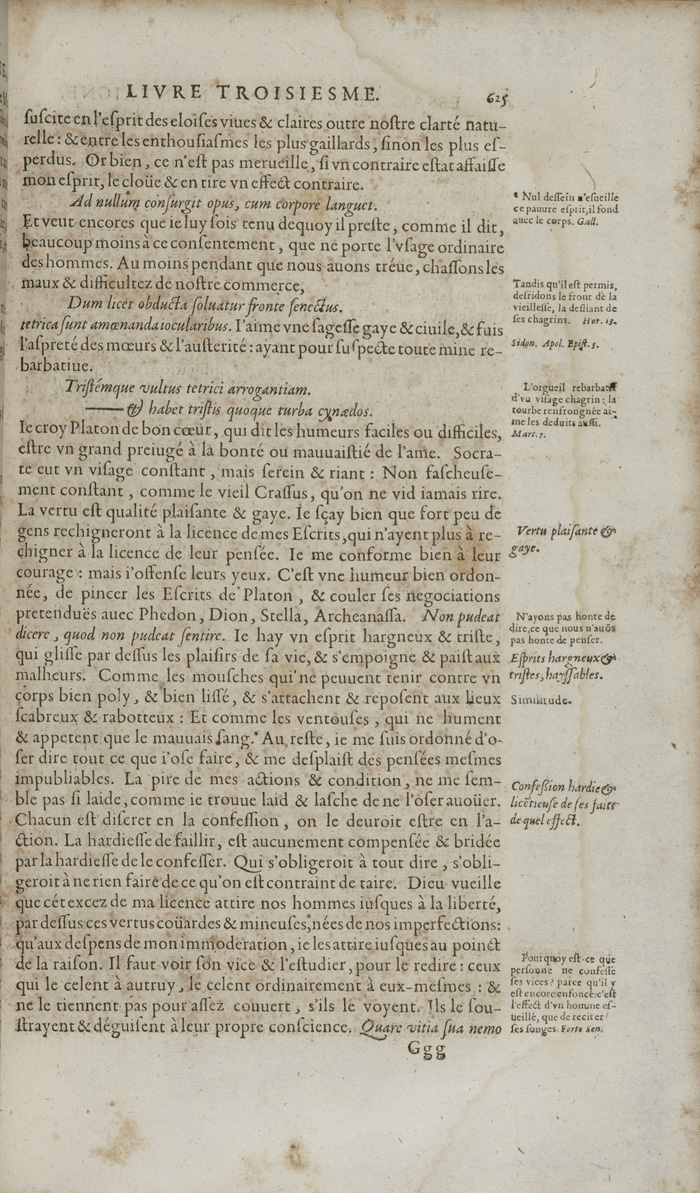 LIVRE TROISIESME. 625
ſuſcite en l'eſprit des eloiſes viues & claires outre noſtre clarté natu-
relle: & entre les enthouſiaſmes les plus gaillards, ſinon les plus eſ-
perdus. Or bien, ce n'eſt pas merueille, ſi vn contraire eſtat affaiſſe
mon eſprit, le cloüe & en tire vn effect contraire.
Ad nullum conſurgit opus, cum corpore languet.
Et veut encores que ie luy ſois tenu dequoy il preſte, comme il dit,
beaucoup moins à ce conſentement, que ne porte l'vſage ordinaire
des hommes. Au moins pendant que nous auons tréue, chaſſons les
maux & difficultez de noſtre commerce,
Dum licet obducta ſoluatur fronte ſenectus.
tetrica ſunt amœnanda iocularibus. I'aime vne ſageſſe gaye & ciuile, & fuis
l'aſpreté des mœurs & l'auſterité: ayant pour ſuſpecte toute mine re-
barbatiue.
Triſtémque vultus tetrici arrogantiam.
—— & habet triſtis quoque turba cynædos.
Ie croy Platon de bon cœur, qui dit les humeurs faciles ou difficiles,
eſtre vn grand preiugé à la bonté ou mauuaiſtié de l'ame. Socra-
te eut vn viſage conſtant, mais ſerein & riant: Non faſcheuſe-
ment conſtant, comme le vieil Craſſus, qu'on ne vid iamais rire.
La vertu eſt qualité plaiſante & gaye. Ie ſçay bien que fort peu de
gens rechigneront à la licence de mes Eſcrits, qui n'ayent plus à re-
chigner à la licence de leur penſée. Ie me conforme bien à leur
courage: mais i'offenſe leurs yeux. C'eſt vne humeur bien ordon-
née, de pincer les Eſcrits de Platon, & couler ſes negociations
pretenduës auec Phedon, Dion, Stella, Archeanaſſa. Non pudeat
dicere, quod non pudeat ſentire. Ie hay vn eſprit hargneux & triſte,
qui gliſſe par deſſus les plaiſirs de ſa vie, & s'empoigne & paiſt aux
malheurs. Comme les mouſches qui ne peuuent tenir contre vn
corps bien poly, & bien liſſé, & s'attachent & repoſent aux lieux
ſcabreux & rabotteux: Et comme les ventouſes, qui ne hument
& appetent que le mauuais ſang. Au reſte, ie me ſuis ordonné d'o-
ſer dire tout ce que i'oſe faire, & me deſplaiſt des penſées meſmes
impubliables. La pire de mes actions & condition, ne me ſem-
ble pas ſi laide, comme ie trouue laid & laſche de ne l'oſer auoüer.
Chacun eſt diſcret en la confeſſion, on le deuroit eſtre en l'a-
ction. La hardieſſe de faillir, eſt aucunement compenſée & bridée
par la hardieſſe de le confeſſer. Qui s'obligeroit à tout dire, s'obli-
geroit à ne rien faire de ce qu'on eſt contraint de taire. Dieu vueille
que cét excez de ma licence attire nos hommes iuſques à la liberté,
par deſſus ces vertus coüardes & mineuſes, nées de nos imperfections:
qu'aux deſpens de mon immoderation, ie les attire iuſques au poinct
de la raiſon. Il faut voir ſon vice & l'eſtudier, pour le redire: ceux
qui le celent à autruy, le celent ordinairement à eux-meſmes: &
ne le tiennent pas pour aſſez couuert, s'ils le voyent. Ils le ſou-
ſtrayent & déguiſent à leur propre conſcience. Quare vitia ſua nemo
Ggg
Nul deſſein n'eſueille
ce pauure eſprit, il fond
auec le corps. Gall.
Tandis qu'il eſt permis,
deſridons le front de la
vieilleſſe, la deſliant de
ſes chagrins. Hor. 13.
Sidon. Apol. Epiſt. 5.
L'orgueil rebarbatif
d'vn viſage chagrin: la
tourbe renfrongnée ai-
me les deduits auſſi.
Mart. 7.
Vertu plaiſante &
gaye.
N'ayons pas honte de
dire, ce que nous n'auõs
pas honte de penſer.
Eſprits hargneux &
triſtes, hayſſables.
Similitude.
Confeſſion hardie &
licẽtieuse de ſes faits
de quel effect.
Pourquoy eſt-ce que
perſonne ne confeſſe
ſes vices? parce qu'il y
eſt encore enfoncé: c'eſt
l'effect d'vn homme eſ-
ueillé, que de reciter
ſes ſonges. Sen.